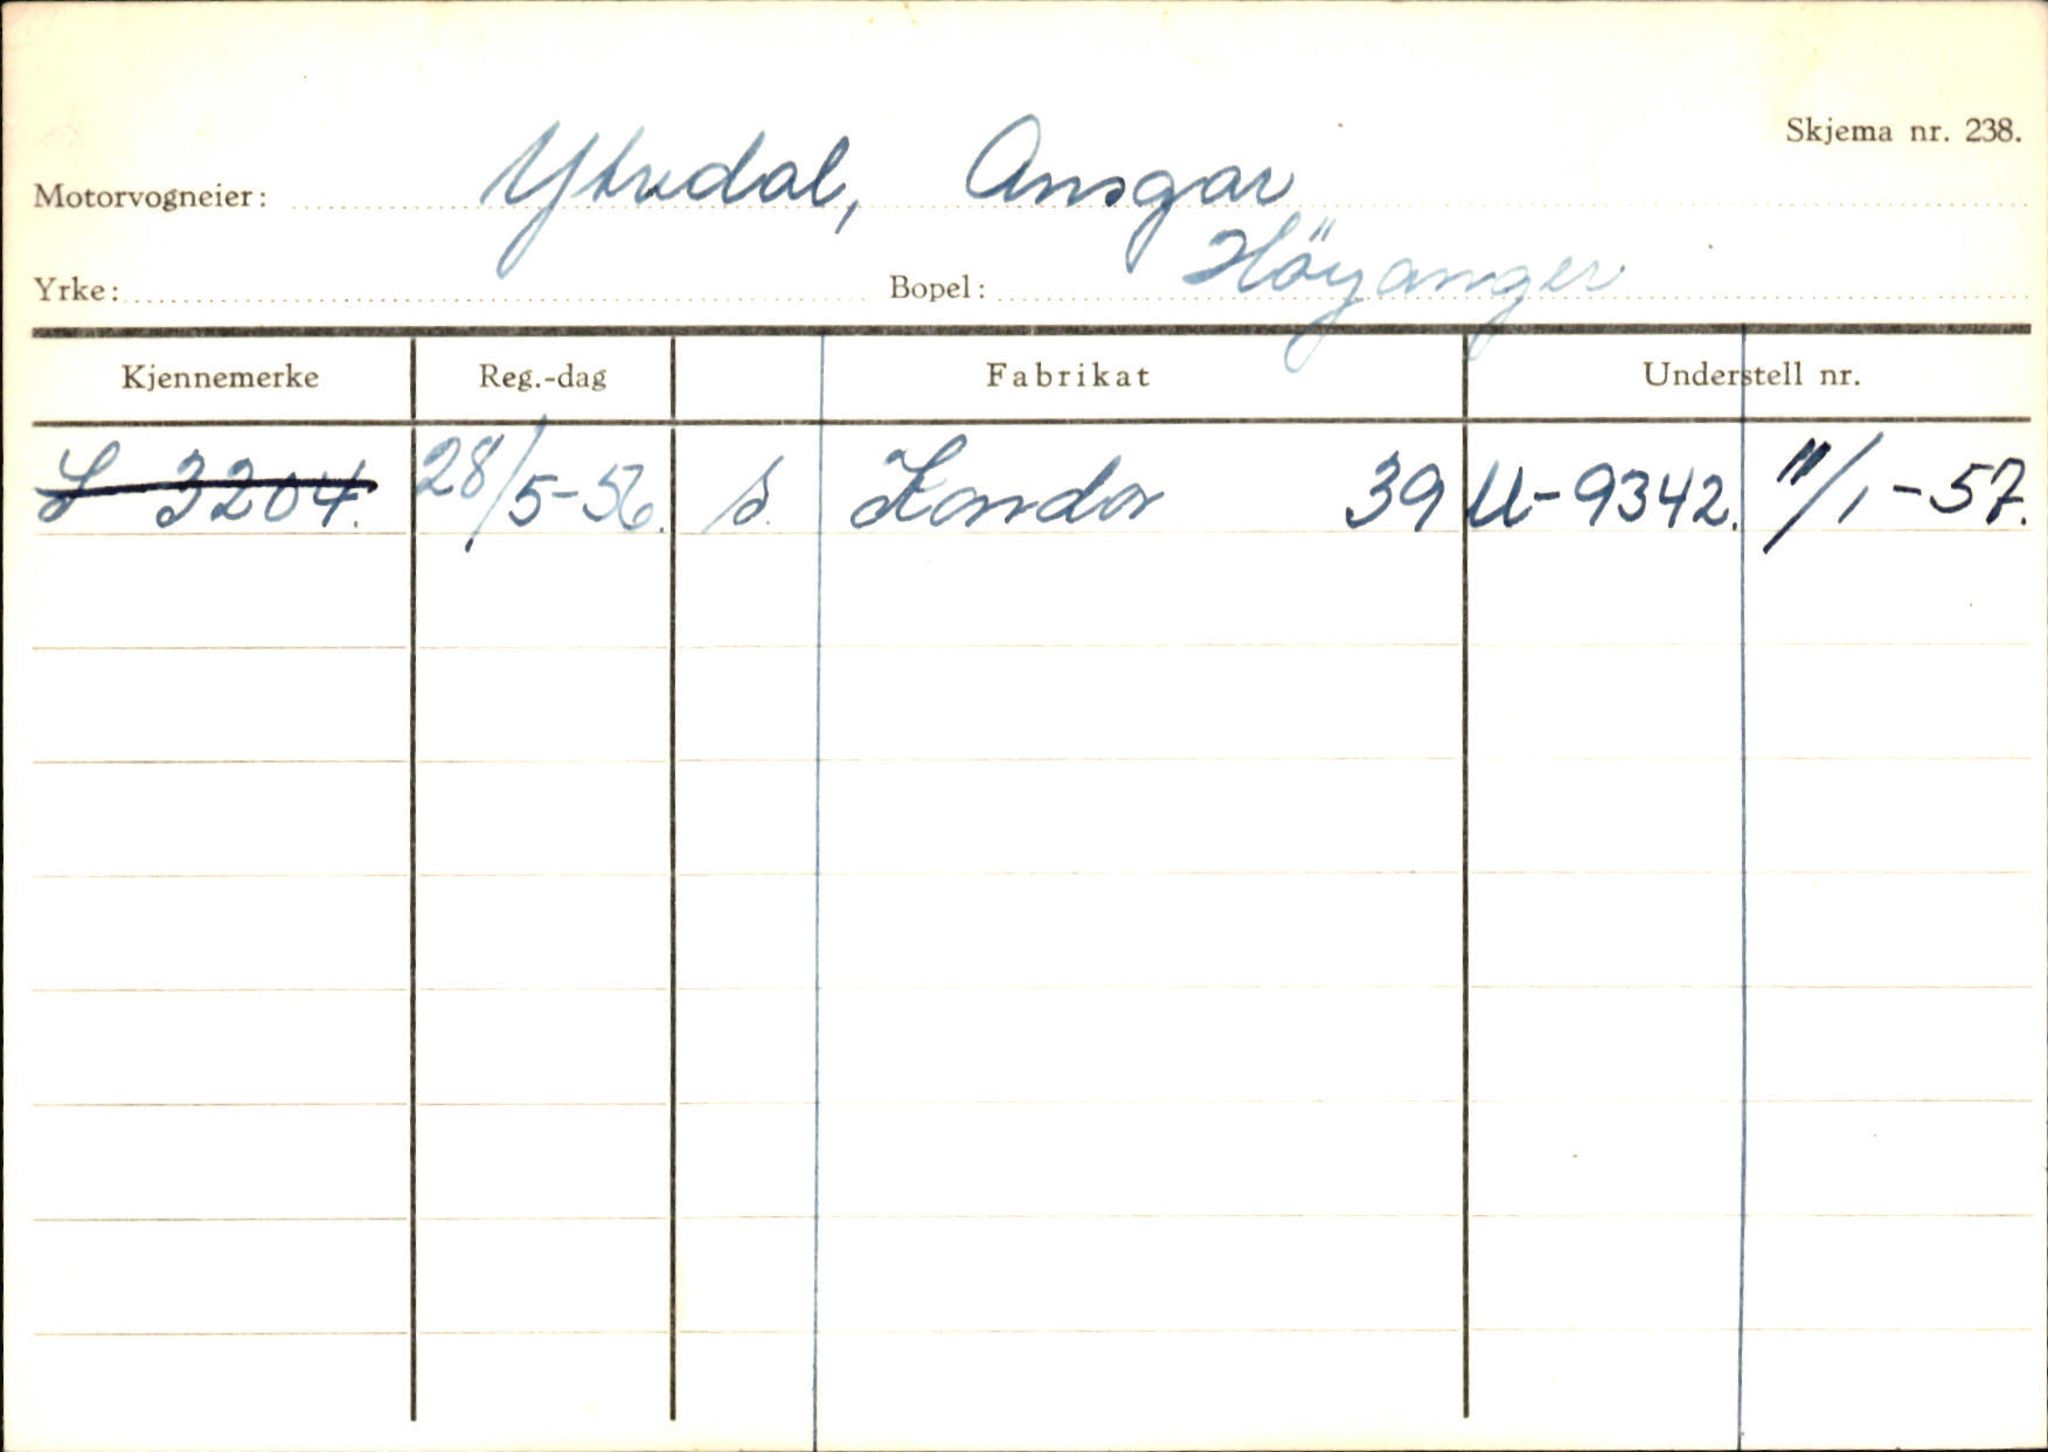 Skjema nr. 238.
Motorvogneier: Ytredal, Ansgar
Yrke: Bopel: Höyanger
Kjennemerke Reg.-dag Fabrikat Understell nr.
S 3204. 28/5-56. s. Kondor 39 U-9342. 11/1-57.